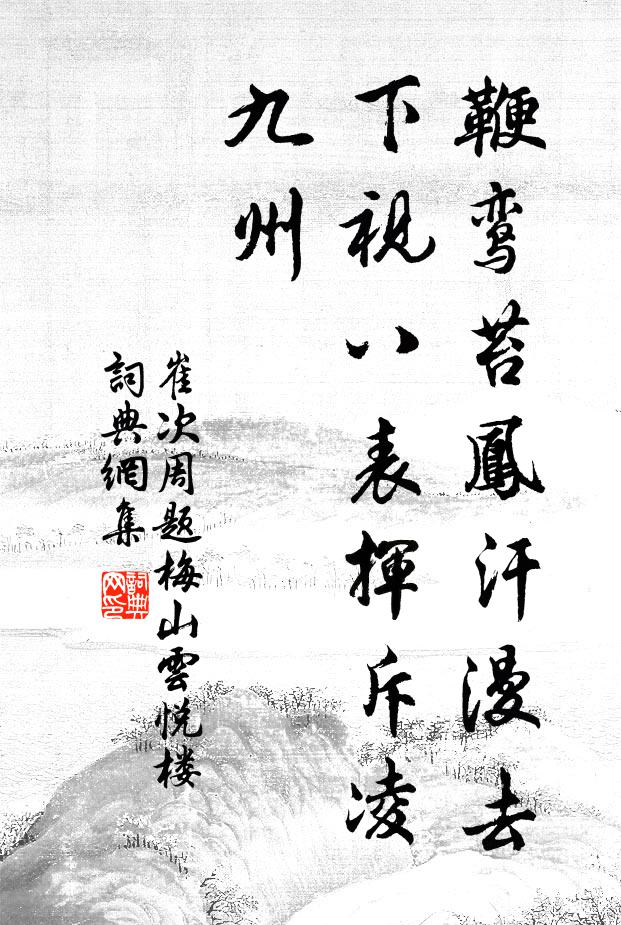 鞭鸾苔鳳汗漫去
下視八表揮斥凌
九州
崔次周题梅山雲悦楼
詞典網集
詞典网印